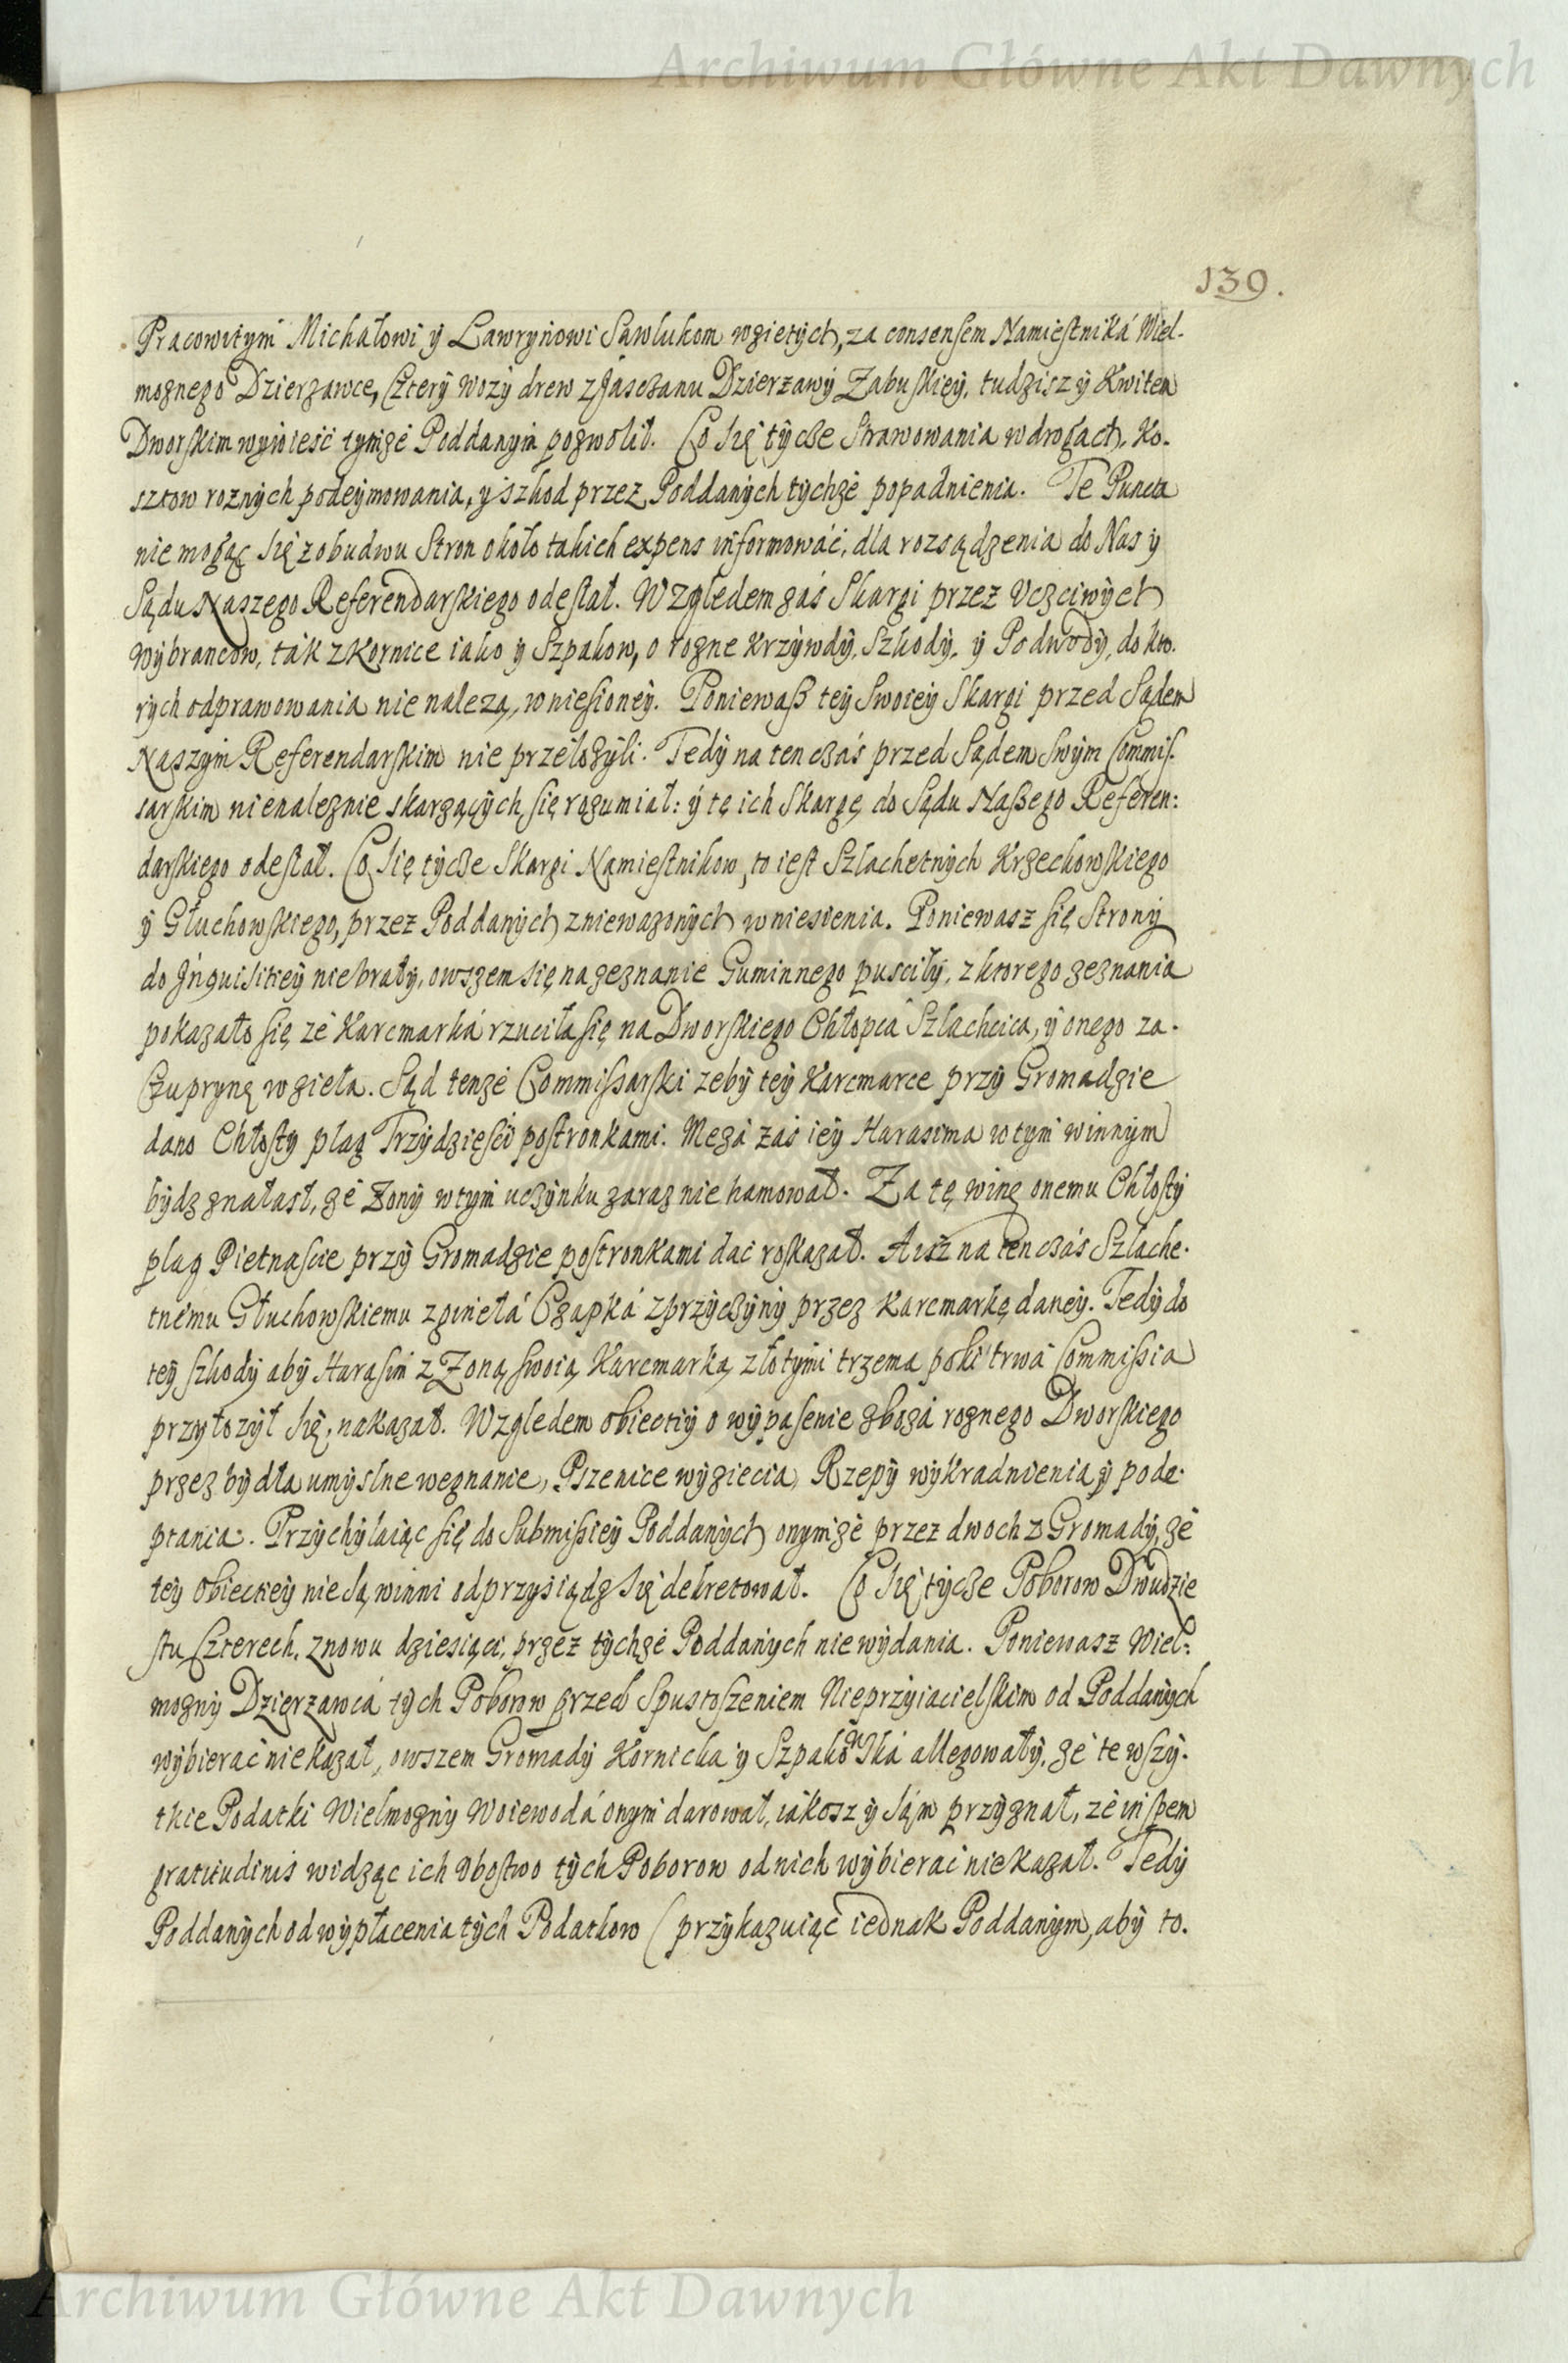 Archiwum Główne Akt Dawnych
139.
Pracowitym Michałowi y Ławrynowi Sawlukom wzietych, za consensem Namiestniká Wiel-
możnego Dzierzawce, Cztery wozy drew z Jaschanu Dzierzawy Zabuskiey, tudzisz y Kwitem
Dworskim wywieść tymże Poddanym pozwolił. Co się tycze Strawowania w drogach, Ko-
sztow roznych podeymowania, y szkod przez Poddanych tychże popadnienia. Te Puncta
nie mogąc się z obudwu Stron około takich expens informowáć, dla rozsądzenia do Nas y
Sądu Naszego Referendarskiego odesłał. Względem zaś Skargi przez Vczciwych
Wybrancow, ták z Kornice iako y Szpakow, o rozne Krzywdy, Szkody, y Podwody, do kto-
rych odprawowania nie nalezą, wniesioney. Poniewasz tey Swoiey Skargi przed Sądem
Naszym Referendarskim nie przełożyli. Tedy na ten czás przed Sądem Swym Commis-
sarskim nienależnie skarżących się rozumiał: y tę ich Skargę do Sądu Naszego Referen:
darskiego odesłał. Co się tycze Skargi Namiestnikow, to iest Szlachetnych Krzechowskiego
y Głuchowskiego, przez Poddanych zniewazonych wniesienia. Poniewasz się Strony
do Inquisitiey nie brały, owszem się na zeznanie Guminnego pusciły, z ktorego zeznania
pokazało się, ze Karcmarká rzuciła się na Dworskiego Chłopcá Szlachcica, y onego za-
Czuprynę wzieła. Sąd tenże Commissarski zeby tey Karcmarce przy Gromadzie
dano Chłosty plag Trzydzieści postronkami. Mężá zaś iey Harasima w tym winnym
bydz znalast, że Zony w tym uczynku zaraz nie hamował. Za tę winę onemu Chłosty
plag Pietnascie przy Gromadzie postronkami dać roskazał. A isz na ten czás Szlache-
tnemu Głuchowskiemu zginełá Czapká z przyczyny przez Karcmarkę daney. Tedy do
tey szkody aby Harasim z Zoną swoią Karcmarką złotymi trzema poki trwá Commissia
przyłozył się, nakazał. Względem obiectiy o wypasenie zbożá roznego Dworskiego
przez bydła umyslne wegnanie, Pszenice wyzięcia, Rzepy wykradnienia y pode-
ptania. Przychylaiąc się do Submissiey Poddanych onymże przez dwoch z Gromady, że
tey obiectiey nie są winni odprzysiądz się dekretował. Co się tycze Poborow Dwudzie
stu Czterech, znowu dziesiąci, przez tychże Poddanych nie wydania. Poniewasz Wiel:
mozny Dzierzawcá tych Poborow przed Spustoszeniem Nieprzyiacielskim od Poddanych
wybierać nie kazał, owszem Gromady Kornicka y Szpakowská allegowały, że te wszy-
tkie Podatki Wielmożny Woiewodá onym darował, iákosz y Sąm przyznał, ze in spem
gratitudinis widząc ich Vbostwo tych Poborow od nich wybierać nie kazał. Tedy
Poddanych od wypłacenia tych Podatkow (przykazuiąc iednak Poddanym, aby to-
Archiwum Główne Akt Dawnych